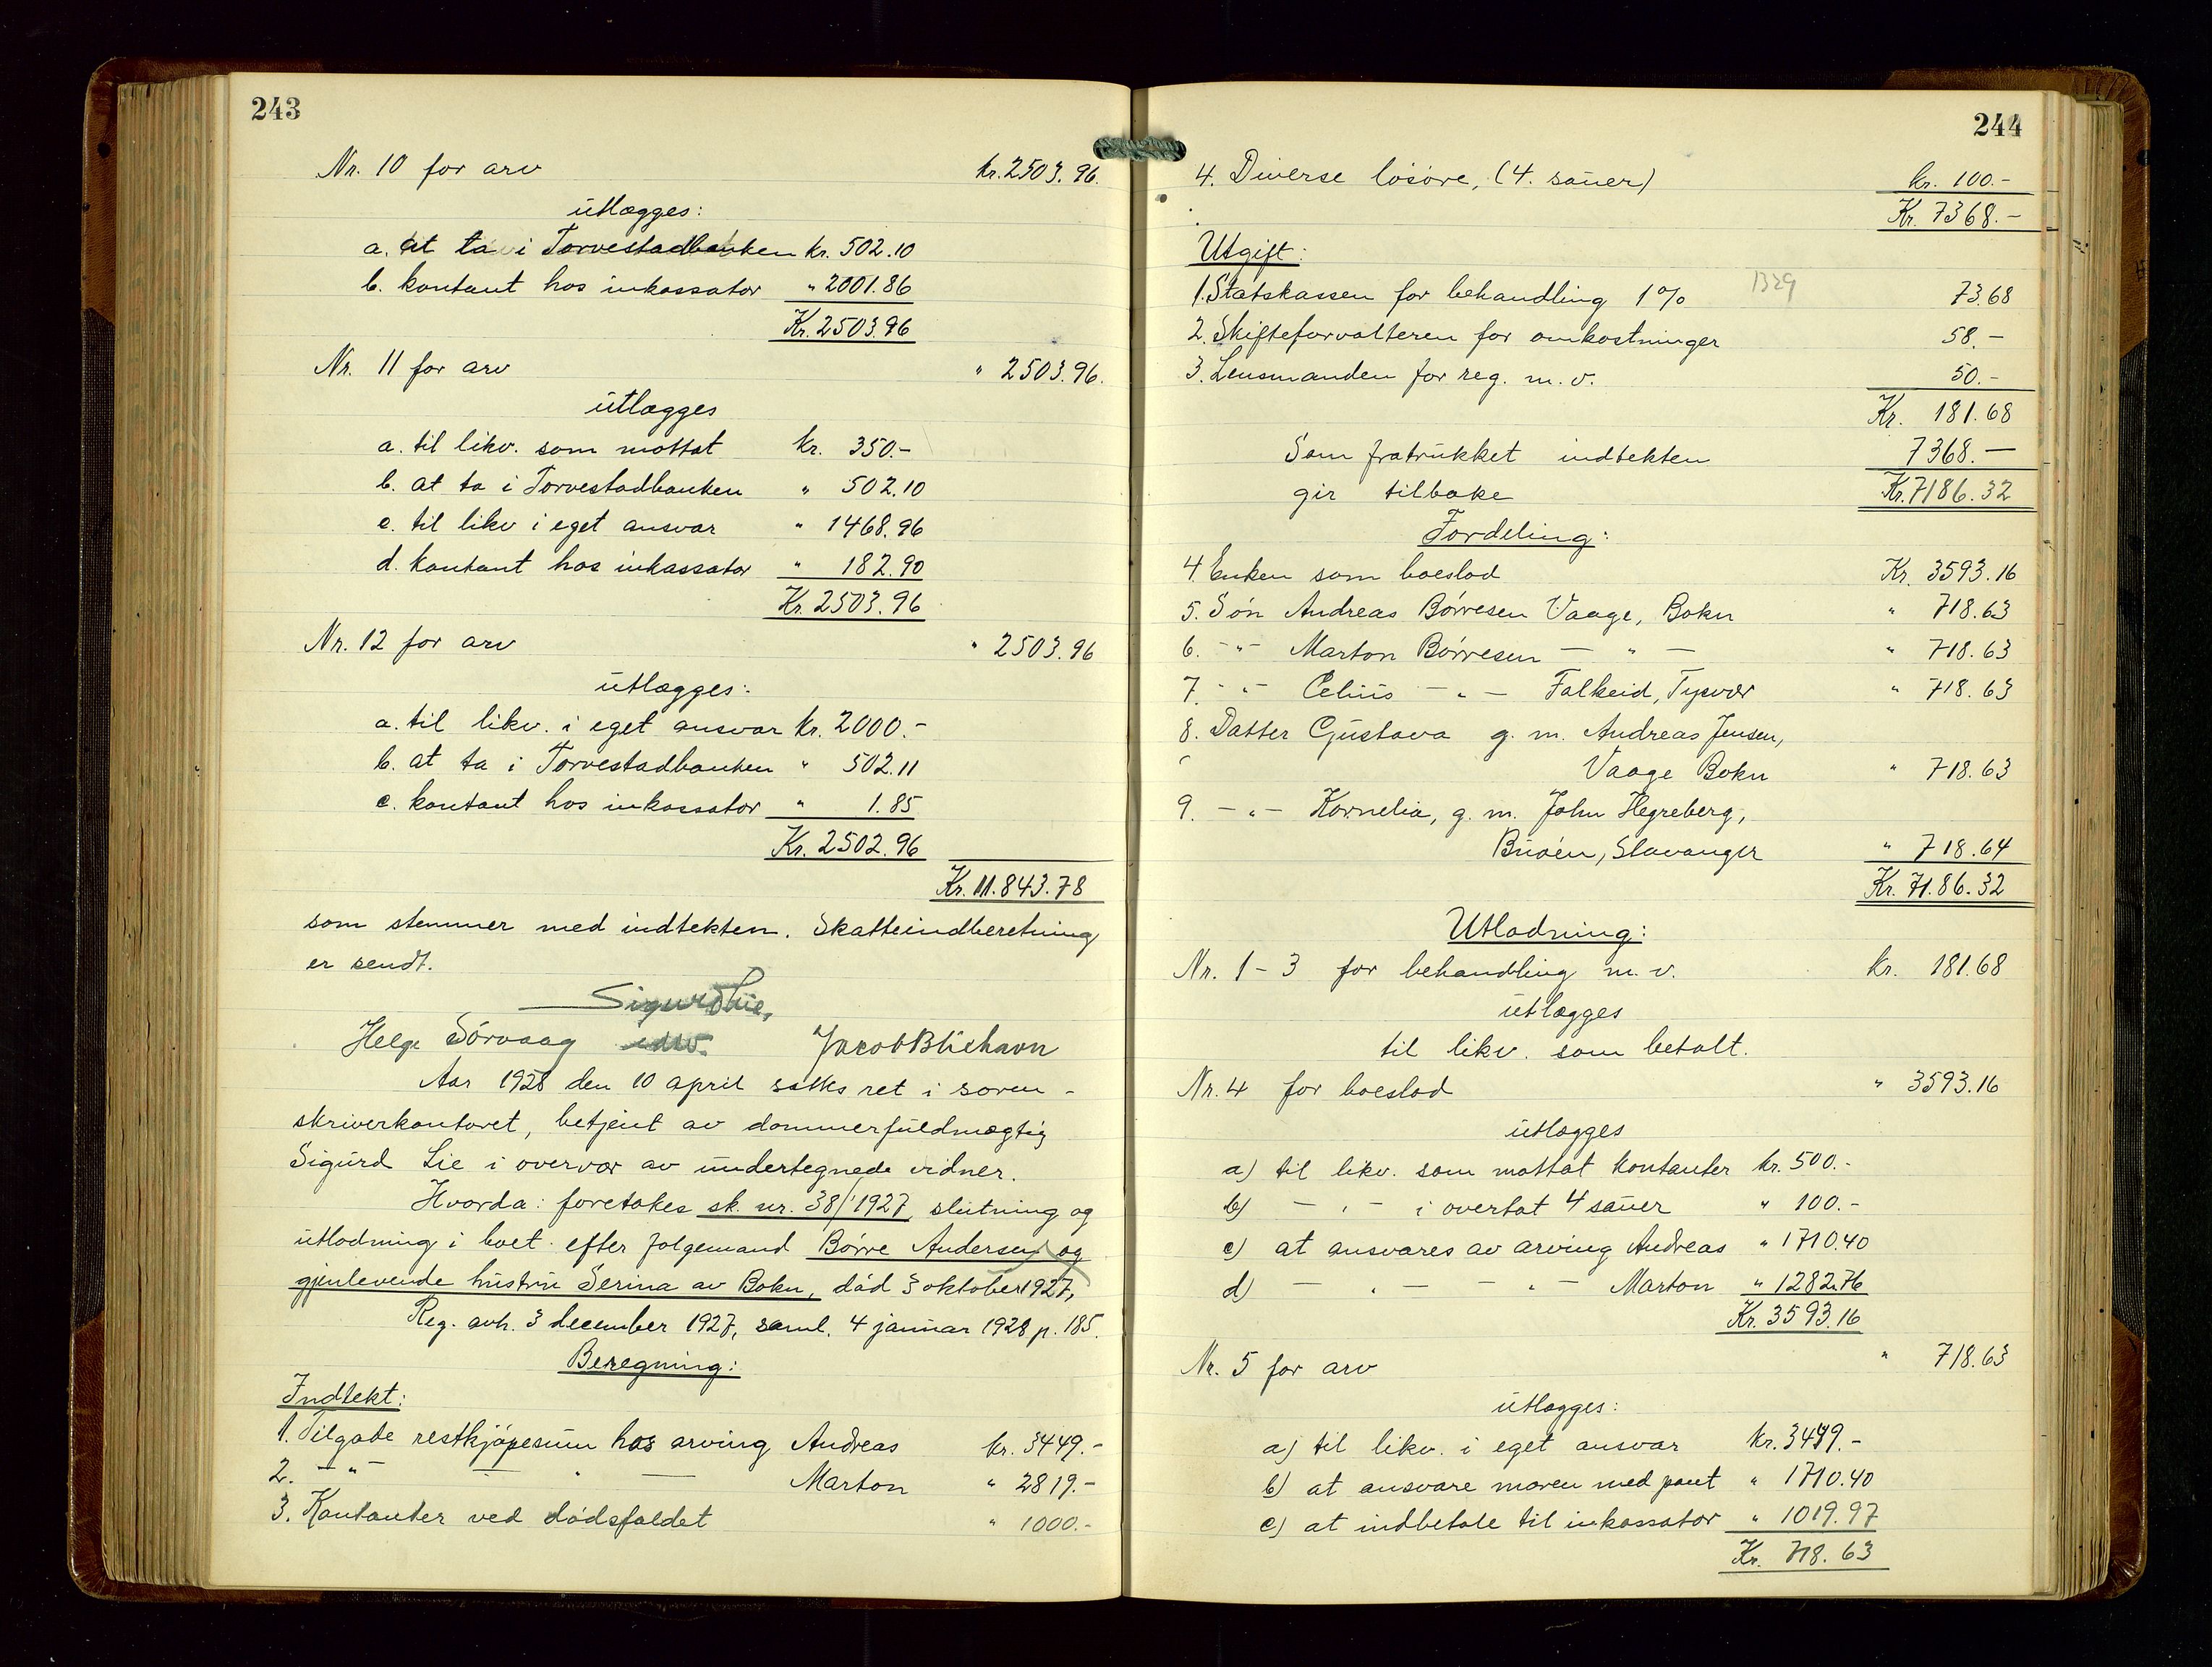 243
Nr. 10 for arv kr. 2503.96.
utlægges:
a. at ta i Torvestadbanken kr. 502.10
b. kontant hos inkassator " 2001.86
Kr. 2503.96
Nr. 11 for arv " 2503.96.
utlægges
a. til likv. som mottat kr. 350.-
b. at ta i Torvestadbanken " 502.10
c. til likv i eget ansvar " 1468.96
d. kontant hos inkassator " 182.90
Kr. 2503.96
Nr. 12 for arv " 2503.96
utlægges:
a. til likv. i eget ansvar kr. 2000.-
b. at ta i Torvestadbanken " 502.11
c. kontant hos inkassator " 1.85
Kr. 2502.96
Kr. 11.843.78
som stemmer med indtekten. Skatteindberetning
er sendt.
Sigurd Lie,
Helge Sørvaag Jacob Bliehavn
Aar 1928 den 10 april sattes ret i soren-
skriverkontoret, betjent av dommerfuldmægtig
Sigurd Lie i overvær av undertegnede vidner.
Hvorda: foretokes sk. nr. 38/1927, slutning og
utlodning i boet efter folgemand Børre Andersen og
gjenlevende hustru Serina av Bokn, død 3 oktober 1927,
Reg. avh. 3 december 1927, saml. 4 januar 1928 p. 185.
Beregning:
Indtekt:
1. Tilgode restkjøpesum hos arving Andreas kr. 3449.-
2. - " - — " — Marton " 2819.-
3. Kontanter ved dødsfaldet " 1000.-
244
4. Diverse løsøre, (4. sauer) kr. 100.-
Kr. 7368.-
Utgift:
1. Statskassen for behandling 1% 1329 73.68
2. Skifteforvalteren for omkostninger 58.-
3. Lensmanden for reg. m. v. 50.-
Kr. 181.68
Som fratrukket indtekten 7368.-
gir tilbake Kr. 7186.32
Fordeling:
4 Enken som boeslod Kr. 3593.16
5. Søn Andreas Børresen Vaage, Bokn " 718.63
6. - " - Marton Børresen — " — " 718.63
7. - " - Celius - " - Falkeid, Tysvær " 718.63
8. Datter Gustava g. m. Andreas Jensen,
Vaage Bokn " 718.63
9. - " - Kornelia, g. m. John Hegreberg,
Buøen, Stavanger " 718.64
Kr. 71.86.32
Utlodning:
Nr. 1-3 for behandling m. v. kr. 181.68
utlægges
til likv. som betalt.
Nr. 4 for boeslod " 3593.16
utlægges
a) til likv. som mottat kontanter kr. 500.-
b) — " — i overtat 4 sauer " 100.-
c) at ansvares av arving Andreas " 1710.40
d) — " — — " — Marton " 1282.76
Kr. 3593.16
Nr. 5 for arv " 718.63
utlægges:
a) til likv. i eget ansvar kr. 3449.-
b) at ansvare moren med pant " 1710.40
c) at indbetale til inkassator " 1019.97
Kr. 718.63